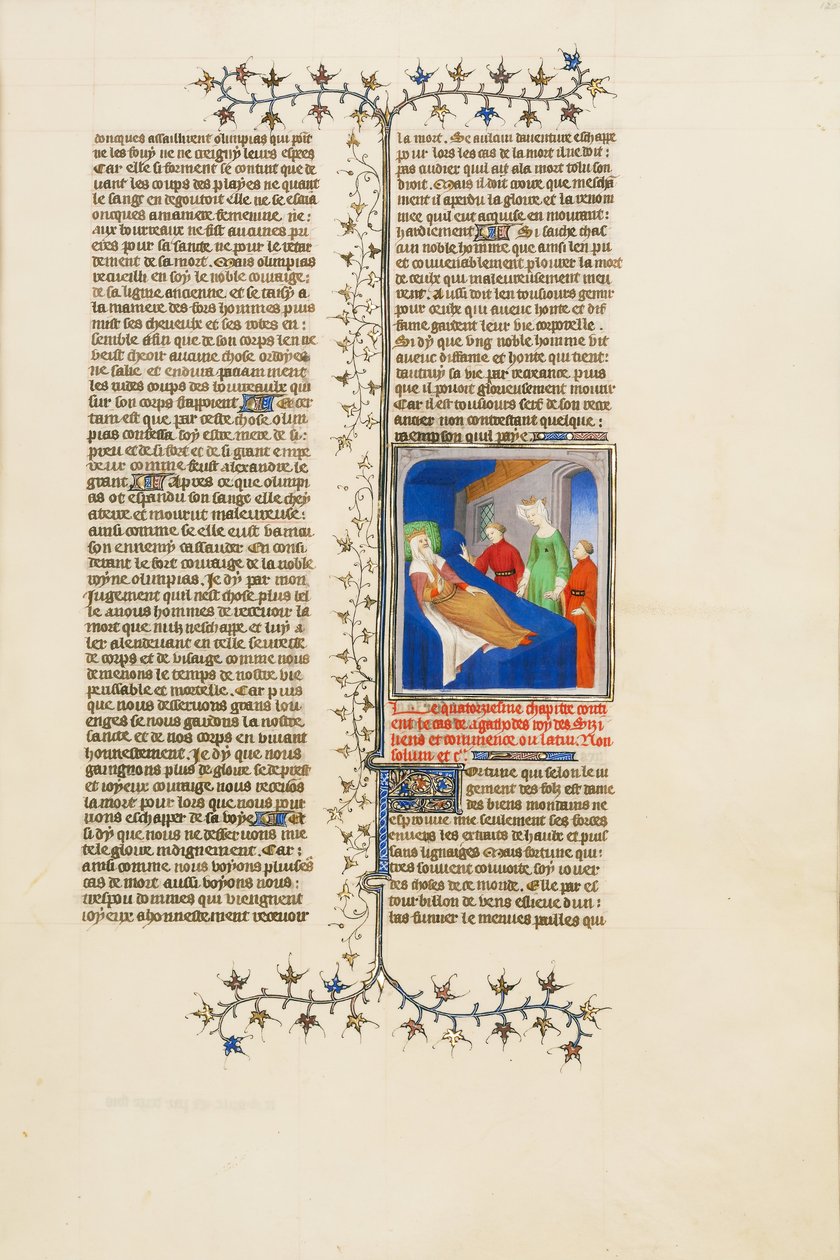 doncques assaillirent olimpias qui point
ne les fouy ne ne creigny leurs espees
Car elle si forment se contint que de
uant les coups des playes ne quant
le sang en degoutoit elle ne sescria
oncques a maniere femenine ne :
aux bourreaux ne fist aucunes pri
eres pour sa sante ne pour le retar
dement de sa mort . Mais olimpias
recueilli en soy le noble couraige :
de sa ligne ancienne et se taisy a
la maniere des fors hommes puis
mist ses cheueulx et ses robes en :
semble affin que de son corps len ne
veist cheoir aucune chose ordoyee
ne salie et endura paciamment
les rudes coups des bourreaulx qui
sur son corps frappoient Et cer
tain est que par ceste chose olim
pias confessa soy estre mere de si :
preu et de si fort et de si grant empe
reur comme feust alexandre le
grant Apres ce que olimpi
as ot espandu son sang elle chey
a terre et mourut maleureuse :
ainsi comme se elle eust vaincu
son ennemy cassander En consi
derant le fort couraige de la noble
royne olimpias . Je dy par mon
jugement quil nest chose plus bel
le a nous hommes de receuoir la
mort que nulz neschappe et luy a
ler alendeuant en telle seurete
de corps et de visaige comme nous
demenons le temps de nostre vie
perissable et mortelle . Car puis
que nous desseruons grans lou
enges se nous gardons la nostre
sante et de nos corps en viuant
honnestement . Je dy que nous
gaingnons plus de gloire se de prest
et joyeux couraige nous receuons
la mort pour lors que nous pour
rions eschapper de sa voye Et
si dy que nous ne desseruons mie
tele gloire indignement . Car :
ainsi comme nous voyons pluiseurs
cas de mort aussi voyons nous :
trespou dommes qui viengnent
joyeux a honnestement receuoir
la mort . Se aulcun dauenture eschappe
pour lors les cas de la mort il ne doit :
pas cuidier quil ait a la mort tolu son
droit . Mais il doit croire que mescha
ment il a perdu la gloire et la renom
mee quil eut acquise en mourant :
hardiement Si saiche chas
cun noble homme que ainsi len pu
et conuenablement plourer la mort
de ceulx qui maleureusement meu
rent . Aussi doit len tousiours gemir
pour ceulx qui auecc honte et dif
fame gardent leur vie corporelle .
Si dy que vng noble homme vit
auecc diffame et honte qui tient :
dautruy sa vie par recreance puis
que il pouoit glorieusement mourir
Car il est tousiours serf de son recre
ancier non contrestant quelque :
raempson quil paye
Le quatorziesme chapitre conti
ent le cas de agathodes roy des Sizi
liens et commence ou latin . Non
solum et c
Fortune qui selon le iu
gement des folz est dame
des biens mondains ne
esprouue mie seulement ses forces
enuers les extraits de haude et puis
sans lignaiges Mais fortune qui :
tres souuent conuoite soy iouer
des choses de ce monde . Elle par es
tourbillon de vens eslieue dun :
bas fumier le menues pailles qui